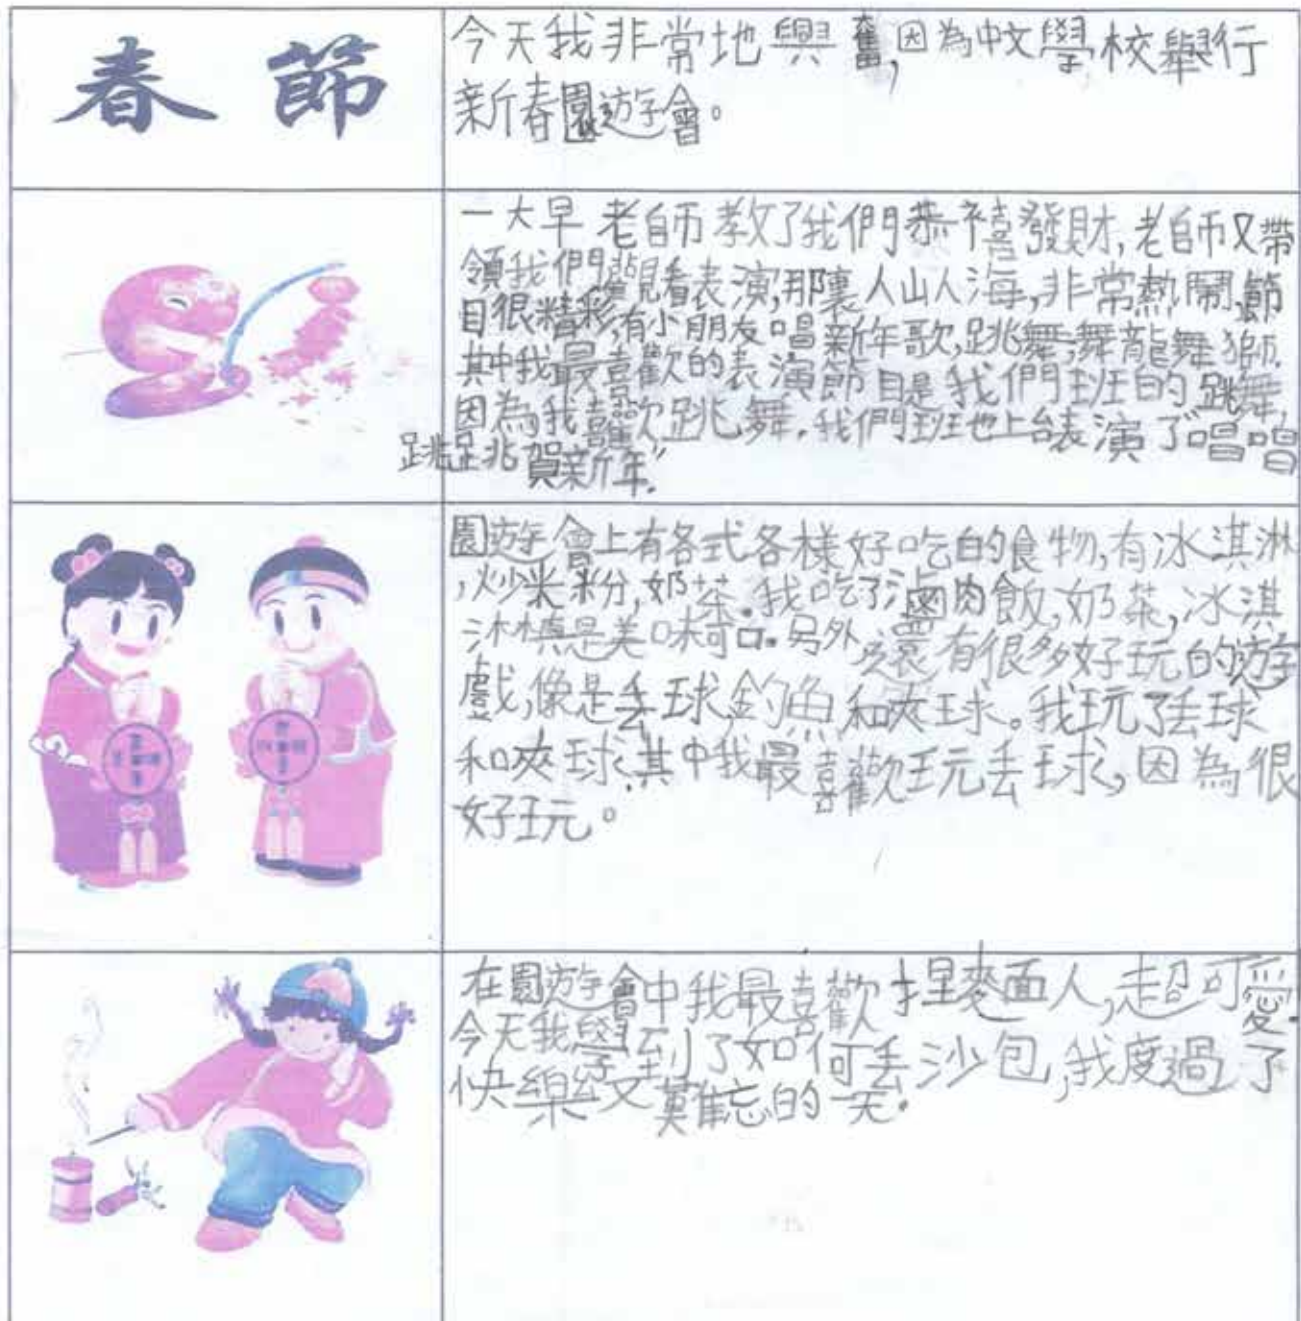 春節
今天我非常地興奮,因為中文學校舉行
新春園遊會。
一大早老師教了我們恭禧發財,老師又帶
領我們觀看表演,那裏人山人海,非常熱鬧,節
目很精彩,有小朋友唱新年歌,跳舞,舞龍舞獅.
其中我最喜歡的表演節目是我們班的跳舞,
因為我喜歡跳舞.我們班也上台表演了"唱唱
跳跳賀新年".
園遊會上有各式各樣好吃的食物,有冰淇淋
,炒米粉,奶茶.我吃了滷肉飯,奶茶,冰淇
淋真是美味可口.另外,還有很多好玩的遊
戲,像是丟球,釣魚和夾球。我玩了丟球
和夾球,其中我最喜歡玩丟球,因為很
好玩。
在園遊會中我最喜歡捏麥面人,超可愛.
今天我學到了如何丟沙包,我度過了
快樂又難忘的一天.